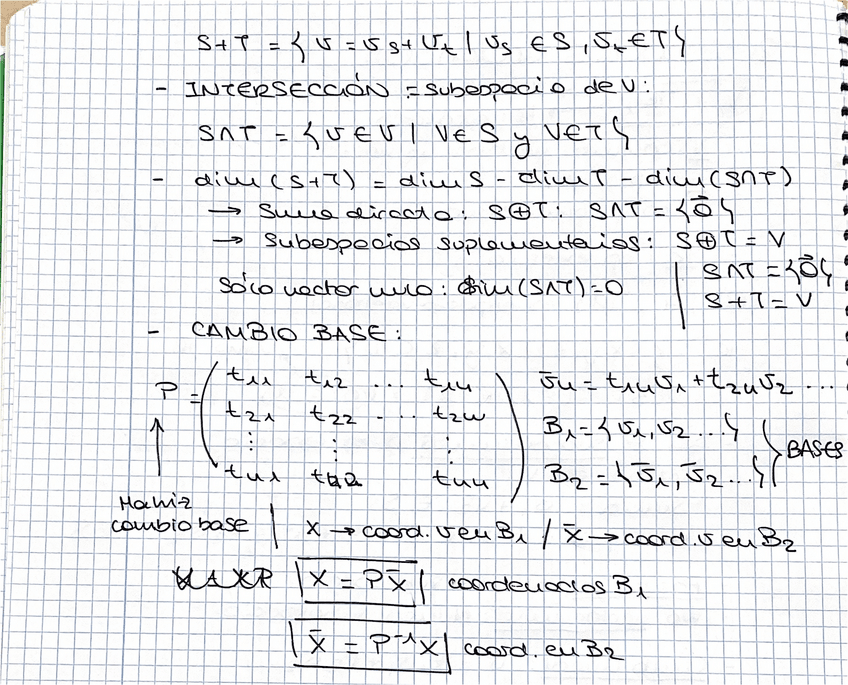 S+T = { v = vs + vt / vs ∈ S, vt ∈ T }
- INTERSECCIÓN = subespacio de V:
S∩T = { v ∈ V / V ∈ S y V ∈ T }
- dim (S+T) = dim S - dim T - dim (S∩T)
→ Suma directa: S⊕T: S∩T = {0̄}
→ Subespacios suplementarios: S⊕T = V
S∩T = {0̄}
S+T = V
Sólo vector nulo: dim (S∩T) = 0
- CAMBIO BASE:
P = ( t11 t12 ... t1n
t21 t22 ... t2n
⋮ ⋮ ⋮
tn1 tn2 tnn )
v̄n = t1n v1 + t2n v2 ...
B1 = { v1, v2 ... }
B2 = { v̄1, v̄2 ... }
BASES
Matriz
cambio base
x → coord. v en B1 / x̄ → coord. v en B2
X = P X̄ coordenadas B1
X̄ = P⁻¹ X coord. en B2